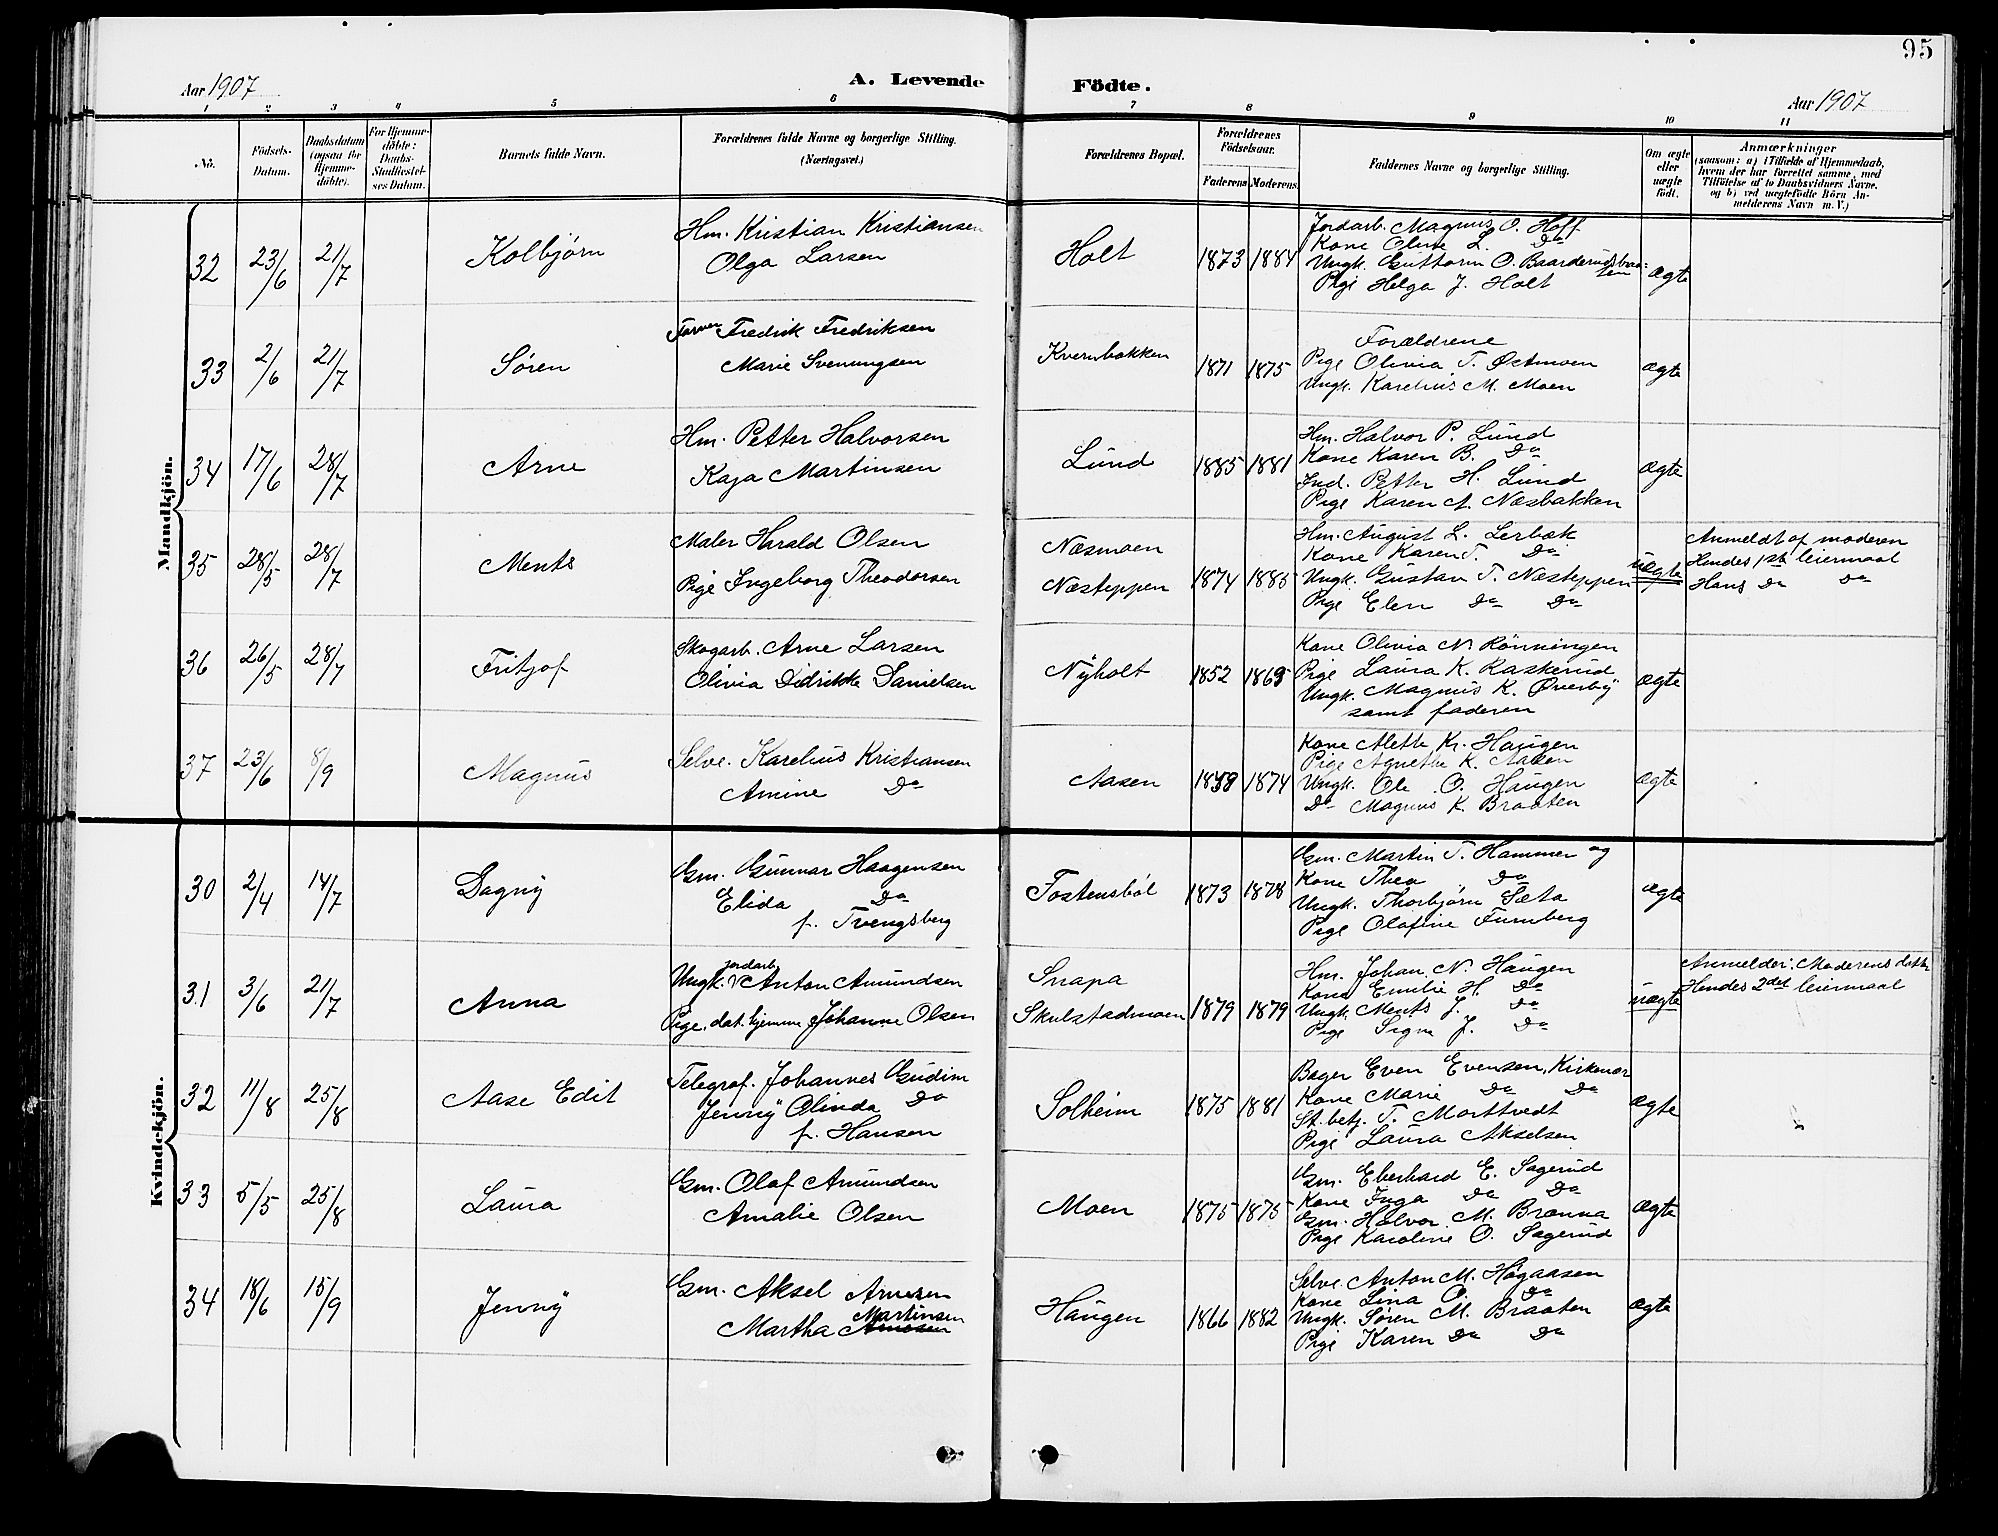 95
Aar 1907
A. Levende
Födte.
Aar 1907
1 2 3 4 5 6 7 8 9 10 11
No.
Födsels-Datum.
Daabsdatum (ogsaa for Hjemmedöbte).
For Hjemmedöbte: Daabs-Stadfæstelses Datum.
Barnets fulde Navn.
Forældrenes fulde Navne og borgerlige Stilling. (Næringsvei.)
Forældrenes Bopæl.
Forældrenes Födselsaar.
Faderens Moderens
Faddernes Navne og borgerlige Stilling.
Om ægte eller uægte födt.
Anmærkninger
(saasom: a) i Tilfælde af Hjemmedaab, hvem der har forrettet samme, med Tilföielse af to Daabsvidners Navne, og b) ved uægtefödte Börn Anmelderens Navn m. V.)
Mandkjön.
32 23/6 21/7 Kolbjørn
Hm. Kristian Kristiansen
Olga Larsen
Holt 1873 1884
Jordarb. Magnus O. Hoff
Kone Oline L. Do
Ungk. Guttorm O. Baarderudsbraaten
Pige Helga J. Holt
ægte
33 2/6 21/7 Søren
Farver Fredrik Fredriksen
Marie Svenungsen
Kvernbakken 1871 1875
Forældrene
Pige Olivia T. Østmoen
Ungk. Karelius M. Moen
ægte
34 17/6 28/7 Arne
Hm. Petter Halvorsen
Kaja Martinsen
Lund 1885 1881
Hm. Halvor P. Lund
Kone Karen B. Do
Ind. Petter H. Lund
Pige Karen A. Næsbakken
ægte
35 28/5 28/7 Ments
Maler Harald Olsen
Pige Ingeborg Theodorsen
Næsmoen
Næsteppen 1874 1885
Hm. August L. Lerbæk
Kone Karen T. Do
Ungk. Gustav T. Næsteppen
Pige Elen Do Do
uægte
Anmeldt af moderen
Hendes 1ste leiermaal
Hans Do Do
36 26/5 28/7 Fritjof
Skogarb. Arne Larsen
Olivia Didrikke Danielsen
Nyholt 1852 1865
Kone Olivia N. Rönningen
Pige Laura K. Kaskerud
Ungk. Magnus K. Øverby
samt faderen
ægte
37 23/6 8/9 Magnus
Selve. Karelius Kristiansen
Amine Do
Aasen 1874
Kone Alette Kr. Haugen
Pige Agnethe K. Aasen
Ungk. Ole O. Haugen
Do Magnus K. Braaten
ægte
Kvindekjön.
30 2/4 14/7 Dagny
Gm. Gunnar Haagensen
Elida Do
f. Tvengsberg
Tostensböl 1873 1878
Gm. Martin T. Hammer og
Kone Thea Do
Ungk. Thorbjørn Sæta
Pige Olafine Furuberg
ægte
31 3/6 21/7 Anna
Ungk. jordarb. Anton Amundsen
Pige, dat. hjemme Johanne Olsen
Snapa
Skulstadmoen 1879 1879
Hm. Johan N. Haugen
Kone Emilie H. Do
Ungk. Ments J. Do
Pige Signe J. Do
uægte
Anmelder: Moderens
Hendes 2det leiermaal
32 11/8 25/8 Aase Edit
Telegraf. Johannes Gudim
Jenny Olinda Do
f. Hansen
Solheim 1875 1881
Bager Even Evensen, Kirkenær
Kone Marie Do Do
St. betj. T. Morttvedt
Pige Laura Akselsen
ægte
33 5/5 25/8 Laura
Gm. Olaf Amundsen
Amalie Olsen
Moen 1875 1875
Gm. Eberhard E. Sagerud
Kone Inga Do Do
Gm. Halvor M. Brænna
Pige Karoline O. Sagerud
ægte
34 18/6 15/9 Jenny
Gm. Aksel Arnesen
Martha Arnesen Martinsen
Haugen 1866 1882
Selve. Anton M. Högaasen
Kone Lina O. Do
Ungk. Søren M. Braaten
Pige Karen Do Do
ægte